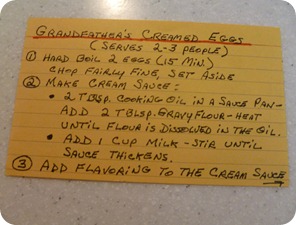 GRANDFATHER'S CREAMED EGGS
(SERVES 2-3 PEOPLE)
① HARD BOIL 2 EGGS (15 MIN.)
CHOP FAIRLY FINE, SET ASIDE
② MAKE CREAM SAUCE:
• 2 TBLSP. COOKING OIL IN A SAUCE PAN-
ADD 2 TBLSP. GRAVY FLOUR-HEAT
UNTIL FLOUR IS DISSOLVED IN THE OIL.
• ADD 1 CUP MILK-STIR UNTIL
SAUCE THICKENS.
③ ADD FLAVORING TO THE CREAM SAUCE